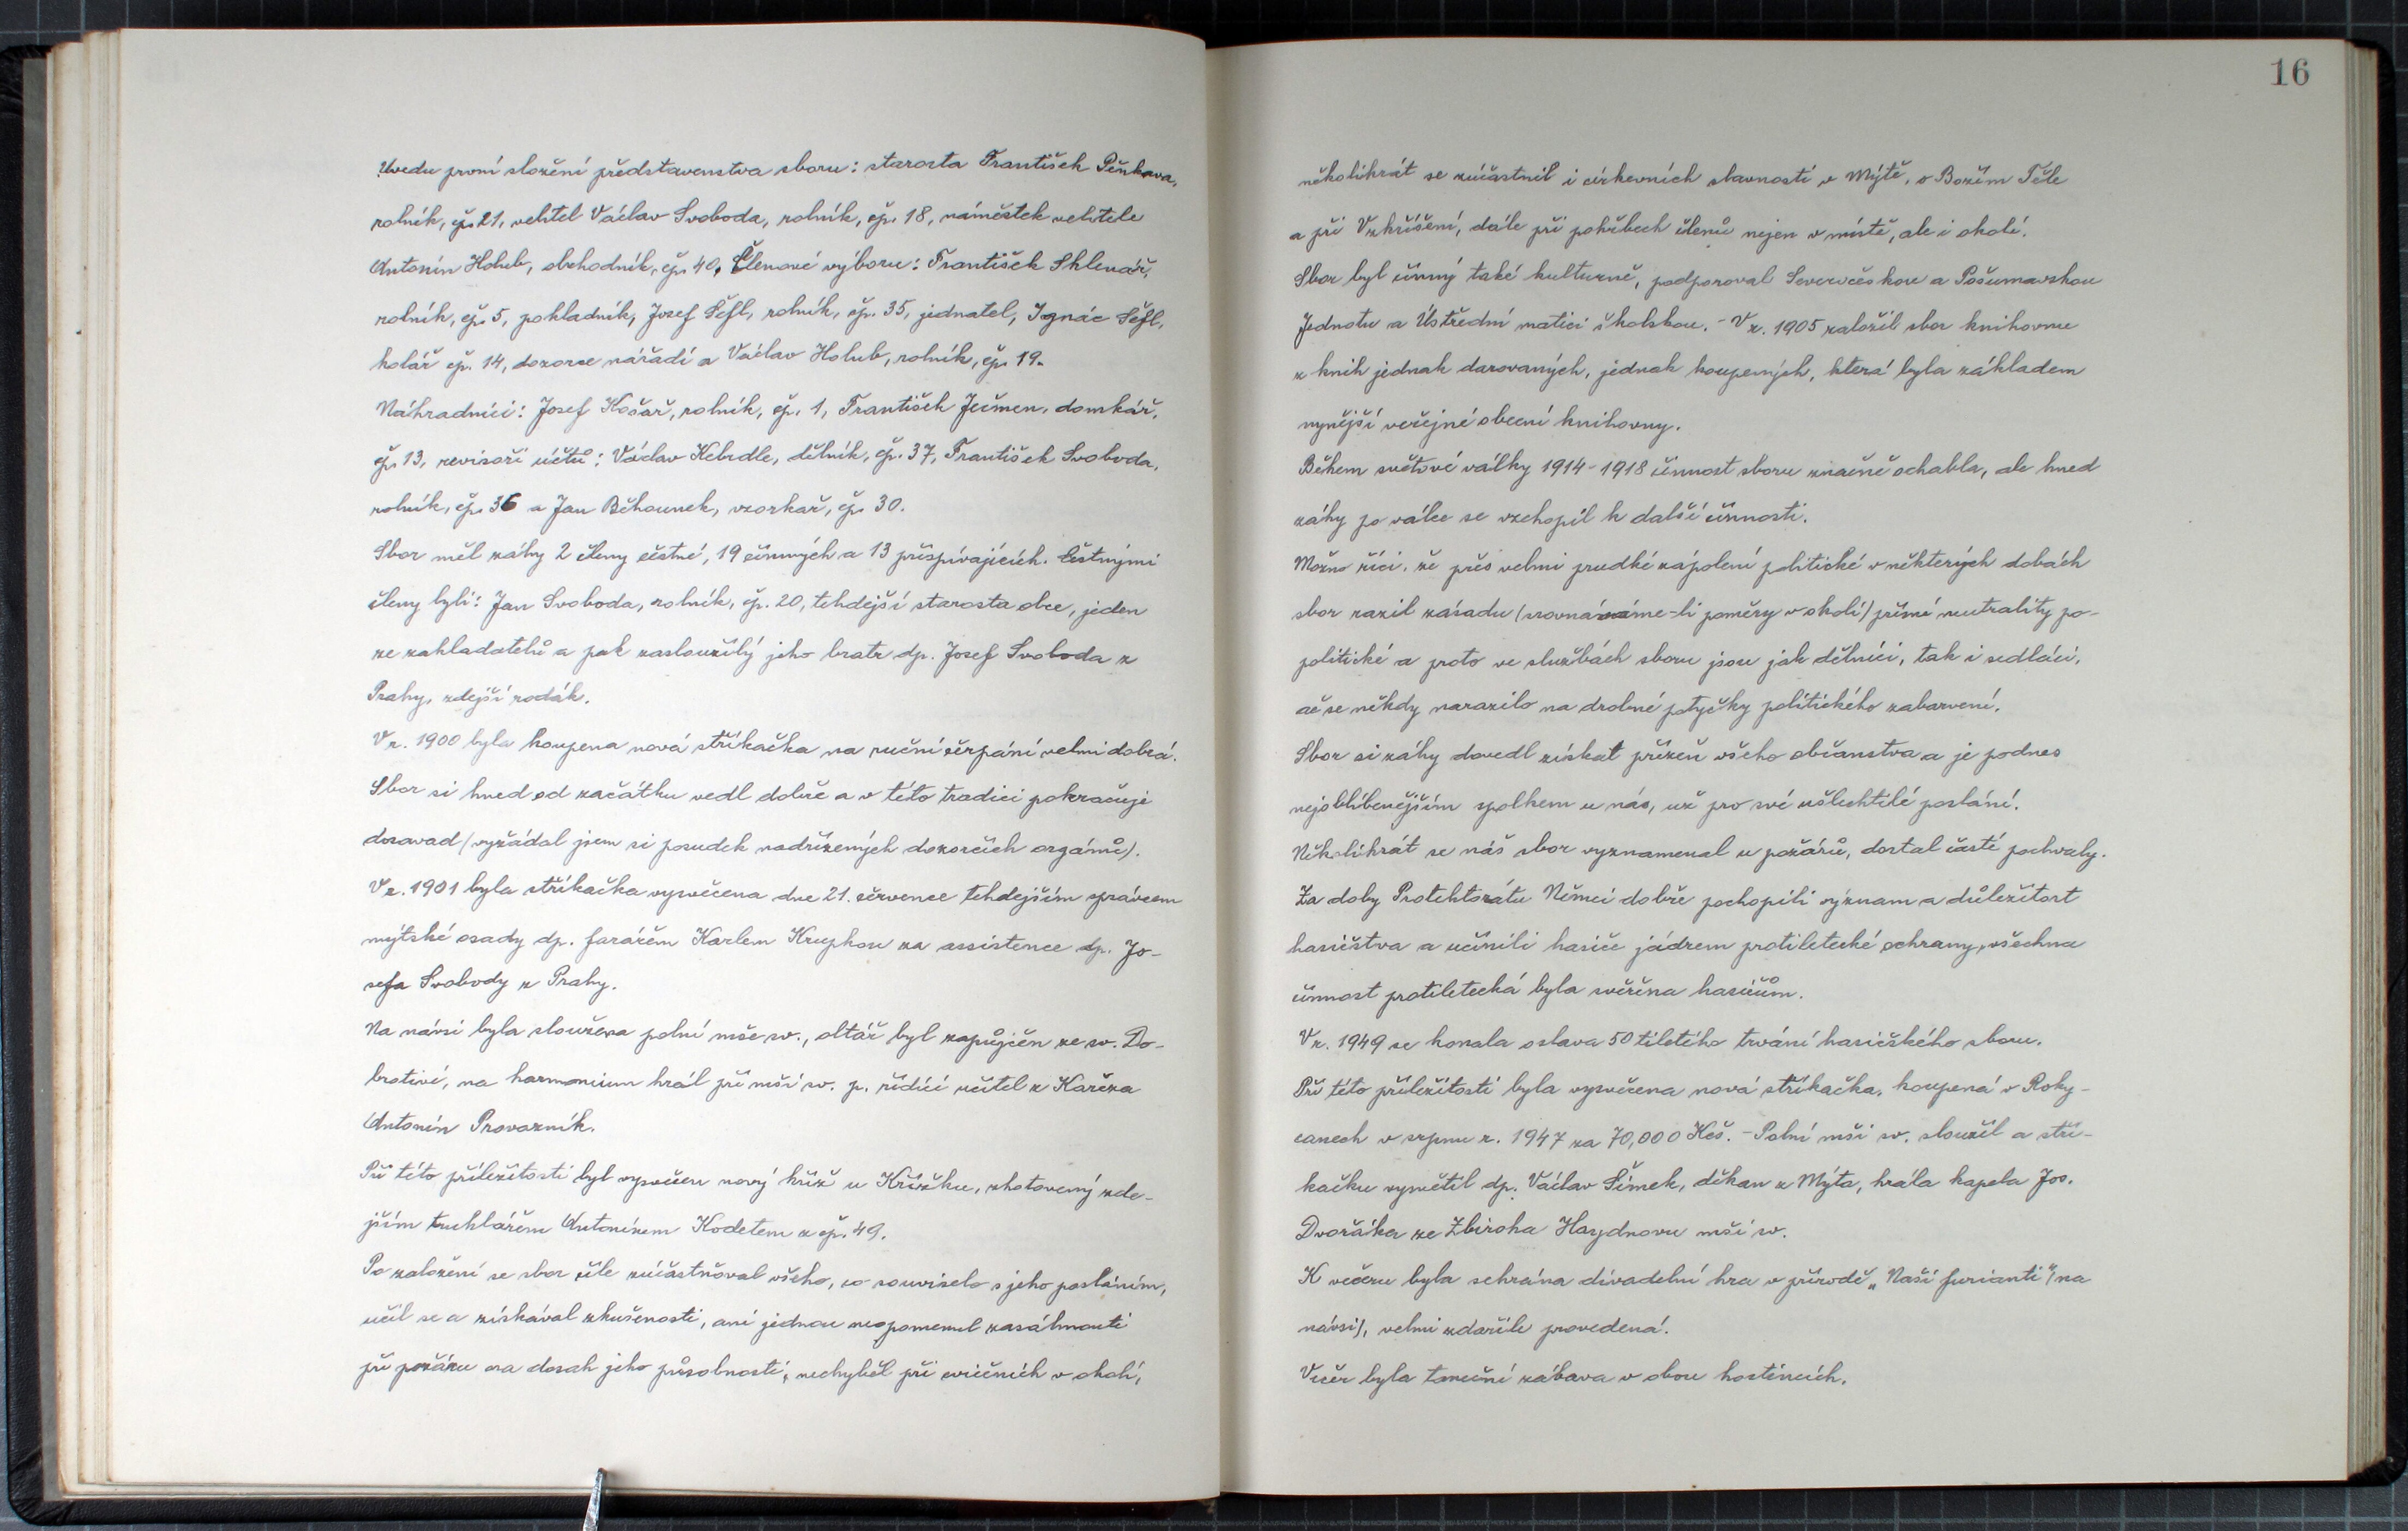 Uvedu první složení představenstva sboru: starosta František Pěnkava,
rolník, čp. 21, velitel Václav Svoboda, rolník, čp. 18, náměstek velitele
Antonín Holub, obchodník, čp. 40, Členové výboru: František Sklenář,
rolník, čp. 5, pokladník, Josef Šefl, rolník, čp. 35, jednatel, Ignác Šefl,
kolář čp. 14, dozorce nářadí a Václav Holub, rolník, čp. 19.
Náhradníci: Josef Košař, rolník, čp. 1, František Ječmen, domkář,
čp. 13, revisoři účtů: Václav Kebrdle, dělník, čp. 37, František Svoboda,
rolník, čp. 36 a Jan Běhounek, vzorkař, čp. 30.
Sbor měl záhy 2 členy čestné, 19 činných a 13 přispívajících. Čestnými
členy byli: Jan Svoboda, rolník, čp. 20, tehdejší starosta obce, jeden
ze zakladatelů a pak zasloužilý jeho bratr dp. Josef Svoboda z
Prahy, zdejší rodák.
V r. 1900 byla koupena nová stříkačka na ruční čerpání velmi dobrá.
Sbor si hned od začátku vedl dobře a v této tradici pokračuje
dosavad (vyžádal jsem si posudek nadřízených dozorčích orgánů).
V r. 1901 byla stříkačka vysvěcena dne 21. července tehdejším správcem
mýtské osady dp. farářem Karlem Krupkou za assistence dp. Jo-
sefa Svobody z Prahy.
Na návsi byla sloužena polní mše sv., oltář byl zapůjčen ze sv. Do-
brotivé, na harmonium hrál při mši sv. p. řídící učitel z Kařeza
Antonín Provazník.
Při této příležitosti byl vysvěcen nový kříž u Křížku, zhotovený zde-
jším truhlářem Antonínem Kodetem z čp. 49.
Po založení se sbor čile zúčastňoval všeho, co souviselo s jeho posláním,
učil se a získával zkušenosti, ani jednou neopomenul zasáhnouti
při požáru na dosah jeho působnosti, nechyběl při cvičeních v okolí,
16
několikrát se zúčastnil i církevních slavností v Mýtě, o Božím Těle
a při Vzkříšení, dále při pohřbech členů nejen v místě, ale i okolí.
Sbor byl činný také kulturně, podporoval Severočeskou a Pošumavskou
Jednotu a Ústřední matici školskou. - V r. 1905 založil sbor knihovnu
z knih jednak darovaných, jednak koupených, která byla základem
nynější veřejné obecní knihovny.
Během světové války 1914-1918 činnost sboru značně ochabla, ale hned
záhy po válce se vzchopil k další činnosti.
Možno říci, že přes velmi prudké zápolení politické v některých dobách
sbor razil zásadu (srovnáváme-li poměry v okolí) přísné neutrality po-
politické a proto ve službách sboru jsou jak dělníci, tak i sedláci,
ač se někdy narazilo na drobné potyčky politického zabarvení.
Sbor si záhy dovedl získat přízeň všeho občanstva a je podnes
nejoblíbenějším spolkem u nás, už pro své ušlechtilé poslání.
Několikrát se náš sbor vyznamenal u požárů, dostal časté pochvaly.
Za doby Protektorátu Němci dobře pochopili význam a důležitost
hasičstva a učinili hasiče jádrem protiletecké ochrany, všechna
činnost protiletecká byla svěřena hasičům.
V r. 1949 se konala oslava 50tiletého trvání hasičského sboru.
Při této příležitosti byla vysvěcena nová stříkačka, koupená v Roky-
canech v srpnu r. 1947 za 70,000 Kčs. - Polní mši sv. sloužil a stří-
kačku vysvětil dp. Václav Šimek, děkan z Mýta, hrála kapela Jos.
Dvořáka ze Zbiroha Haydnovu mši sv.
K večeru byla sehrána divadelní hra v přírodě „Naši furianti“ (na
návsi), velmi zdařile provedená.
Večer byla taneční zábava v obou hostincích.